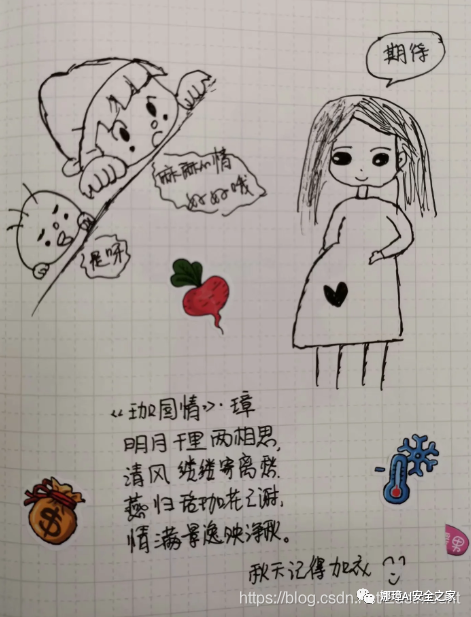 期待
麻麻心情
好好哦
是呀
《珈国情》·璋
明月千里两相思,
清风缕缕寄离愁。
燕归珞珈花已谢,
情满景逸映深秋。
秋天记得加衣
https://blog.csdn.net/Eastmount
娜璋AI安全之家